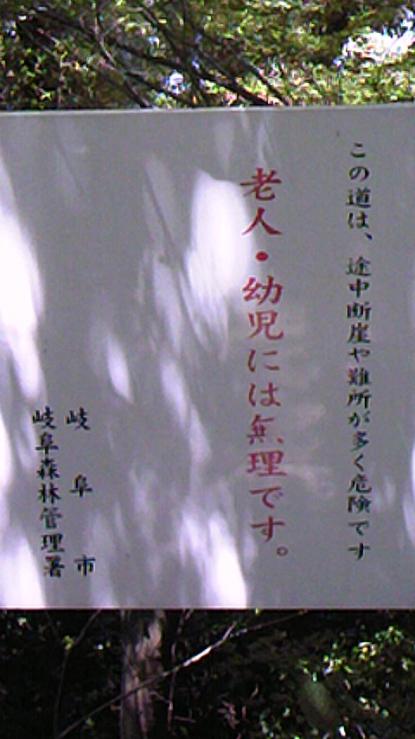 この道は、途中断崖や難所が多く危険です
老人・幼児には無理です。
岐阜市
岐阜森林管理署